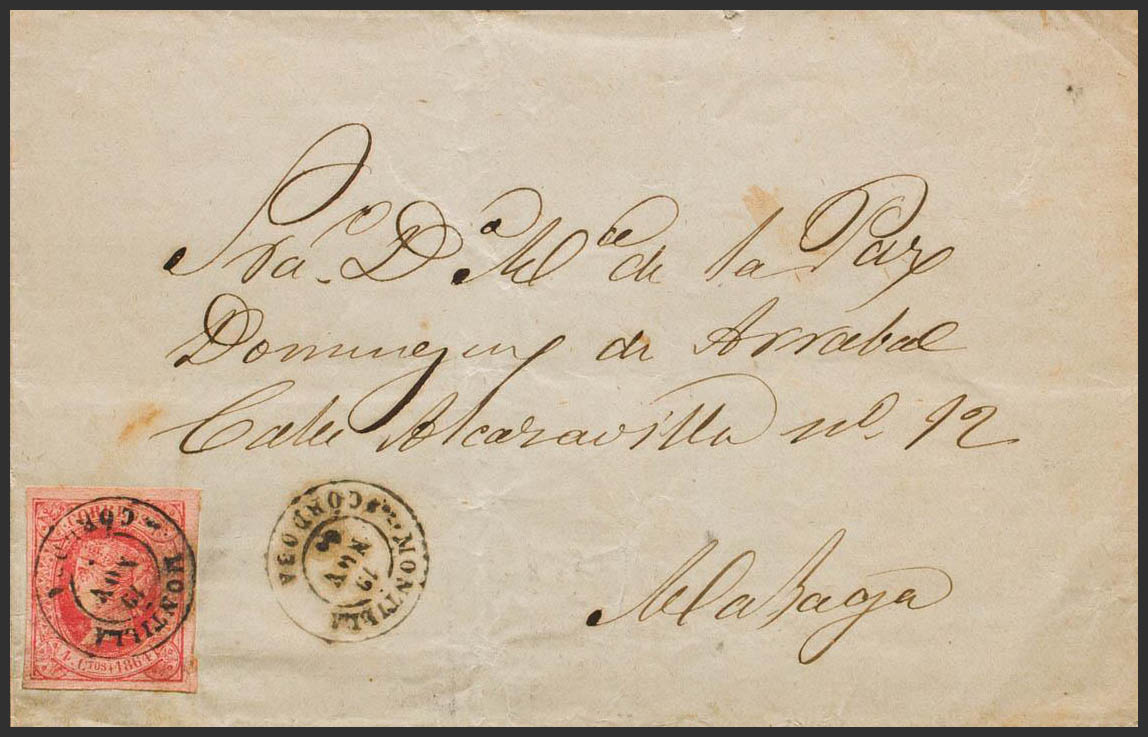 Sra. Dª Mª de la Paz
Dominguez de Arrabal
Calle Alcazavilla nº. 12
Malaga
MONTILLA
CORDOBA
19
NOV
MONTILLA
CORDOBA
19
NOV
4 CTOS 1864